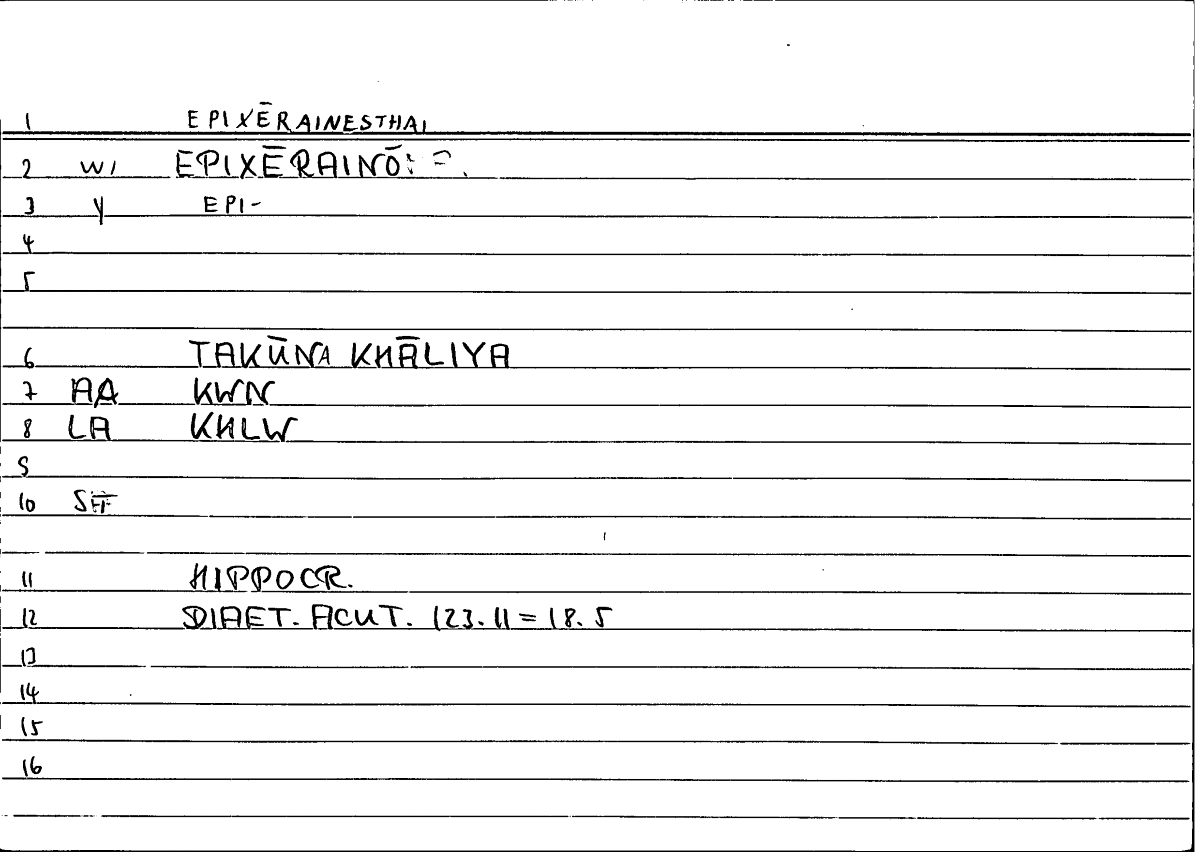 1 EPIXĒRAINESTHAI
2 W1 EPIXĒRAINŌ:
3 Y EPI-
4
5
6 TAKŪNA KHĀLIYA
7 AA KWN
8 LA KHLW
9
10
11 HIPPOCR.
12 DIAET. ACUT. 123.11 = 18.5
13
14
15
16